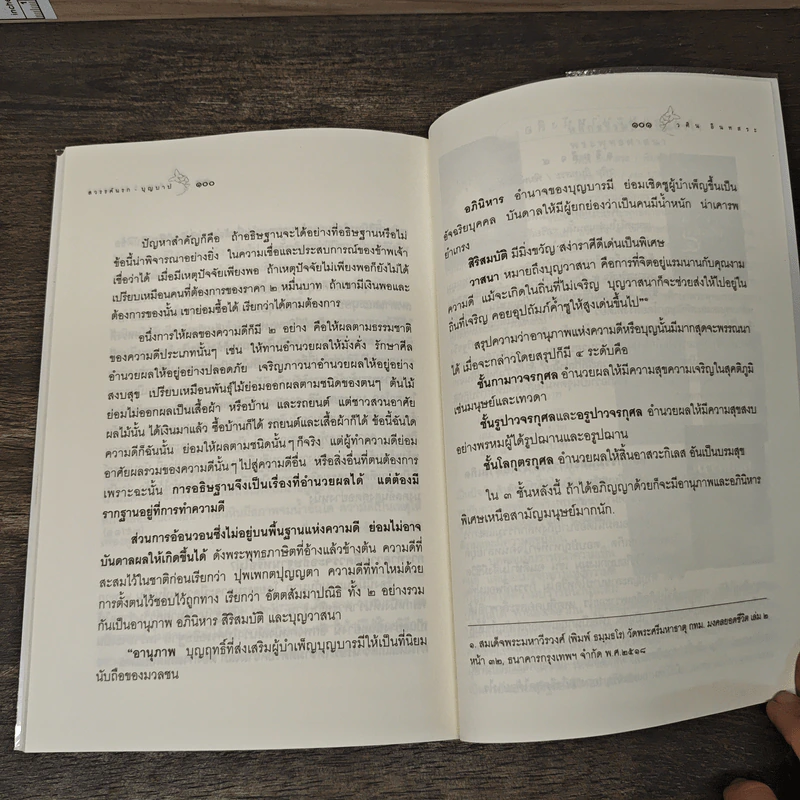 สารรตันตร : บุญบาป ๑๐๐
ปัญหาสำคัญก็คือ ถ้าอธิษฐานจะได้อย่างที่อธิษฐานหรือไม่
ข้อนี้น่าพิจารณาอย่างยิ่ง ในความเชื่อและประสบการณ์ของข้าพเจ้า
เชื่อว่าได้ เมื่อมีเหตุปัจจัยเพียงพอ ถ้าเหตุปัจจัยไม่เพียงพอก็ยังไม่ได้
เปรียบเหมือนคนที่ต้องการของราคา ๒ หมื่นบาท ถ้าเขามีเงินพอและ
ต้องการของนั้น เขาย่อมซื้อได้ เรียกว่าได้ตามต้องการ
อนึ่งการให้ผลของความดีก็มี ๒ อย่าง คือให้ผลตามธรรมชาติ
ของความดีประเภทนั้นๆ เช่น ให้ทานอำนวยผลให้มั่งคั่ง รักษาศีล
อำนวยผลให้อยู่อย่างปลอดภัย เจริญภาวนาอำนวยผลให้อยู่อย่าง
สงบสุข เปรียบเหมือนพันธุ์ไม้ย่อมออกผลตามชนิดของตนๆ ต้นไม้
ย่อมไม่ออกผลเป็นเสื้อผ้า หรือบ้าน และรถยนต์ แต่ชาวสวนอาศัย
ผลไม้นั้น ได้เงินมาแล้ว ซื้อบ้านก็ได้ รถยนต์และเสื้อผ้าก็ได้ ข้อนี้ฉันใด
ความดีก็ฉันนั้น ย่อมให้ผลตามชนิดนั้นๆ ก็จริง แต่ผู้ทำความดีย่อม
อาศัยผลรวมของความดีนั้นๆ ไปสู่ความดีอื่น หรือสิ่งอื่นที่ตนต้องการ
เพราะฉะนั้น การอธิษฐานจึงเป็นเรื่องที่อำนวยผลได้ แต่ต้องมี
รากฐานอยู่ที่การทำความดี
ส่วนการอ้อนวอนซึ่งไม่อยู่บนพื้นฐานแห่งความดี ย่อมไม่อาจ
บันดาลผลให้เกิดขึ้นได้ ดังพระพุทธภาษิตที่อ้างแล้วข้างต้น ความดีที่
สะสมไว้ในชาติก่อนเรียกว่า ปุพเพกตปุญญตา ความดีที่ทำใหม่ด้วย
การตั้งตนไว้ชอบไว้ถูกทาง เรียกว่า อัตตสัมมาปณิธิ ทั้ง ๒ อย่างรวม
กันเป็นอานุภาพ อภินิหาร สิริสมบัติ และบุญวาสนา
"อานุภาพ บุญฤทธิ์ที่ส่งเสริมผู้บำเพ็ญบุญบารมีให้เป็นที่นิยม
นับถือของมวลชน
๑๐๑ วศิน อินทสระ
อภินิหาร อำนาจของบุญบารมี ย่อมเชิดชูผู้บำเพ็ญขึ้นเป็น
อัจฉริยบุคคล บันดาลให้มีผู้ยกย่องว่าเป็นคนมีน้ำหนัก น่าเคารพ
ยำเกรง
สิริสมบัติ มีมิ่งขวัญ สง่าราศีดีเด่นเป็นพิเศษ
วาสนา หมายถึงบุญวาสนา คือการที่จิตอยู่แรมนานกับคุณงาม
ความดี แม้จะเกิดในถิ่นที่ไม่เจริญ บุญวาสนาก็จะช่วยส่งให้ไปอยู่ใน
ถิ่นที่เจริญ คอยอุปถัมภ์ค้ำชูให้สูงเด่นขึ้นไป"๑
สรุปความว่าอานุภาพแห่งความดีหรือบุญนั้นมีมากสุดจะพรรณนา
ได้ เมื่อจะกล่าวโดยสรุปก็มี ๔ ระดับคือ
ชั้นกามาวจรกุศล อำนวยผลให้มีความสุขความเจริญในสุคติภูมิ
เช่นมนุษย์และเทวดา
ชั้นรูปาวจรกุศลและอรูปาวจรกุศล อำนวยผลให้มีความสุขสงบ
อย่างพรหมผู้ได้รูปฌานและอรูปฌาน
ชั้นโลกุตรกุศล อำนวยผลให้สิ้นอาสวะกิเลส อันเป็นบรมสุข
ใน ๓ ชั้นหลังนี้ ถ้าได้อภิญญาด้วยก็จะมีอานุภาพและอภินิหาร
พิเศษเหนือสามัญมนุษย์มากนัก.
๑. สมเด็จพระมหาวีรวงศ์ (พิมพ์ ธมฺมธโร) วัดพระศรีมหาธาตุ กทม. มงคลยอดชีวิต เล่ม ๒
หน้า ๓๒, ธนาคารกรุงเทพฯ จำกัด พ.ศ.๒๕๑๘